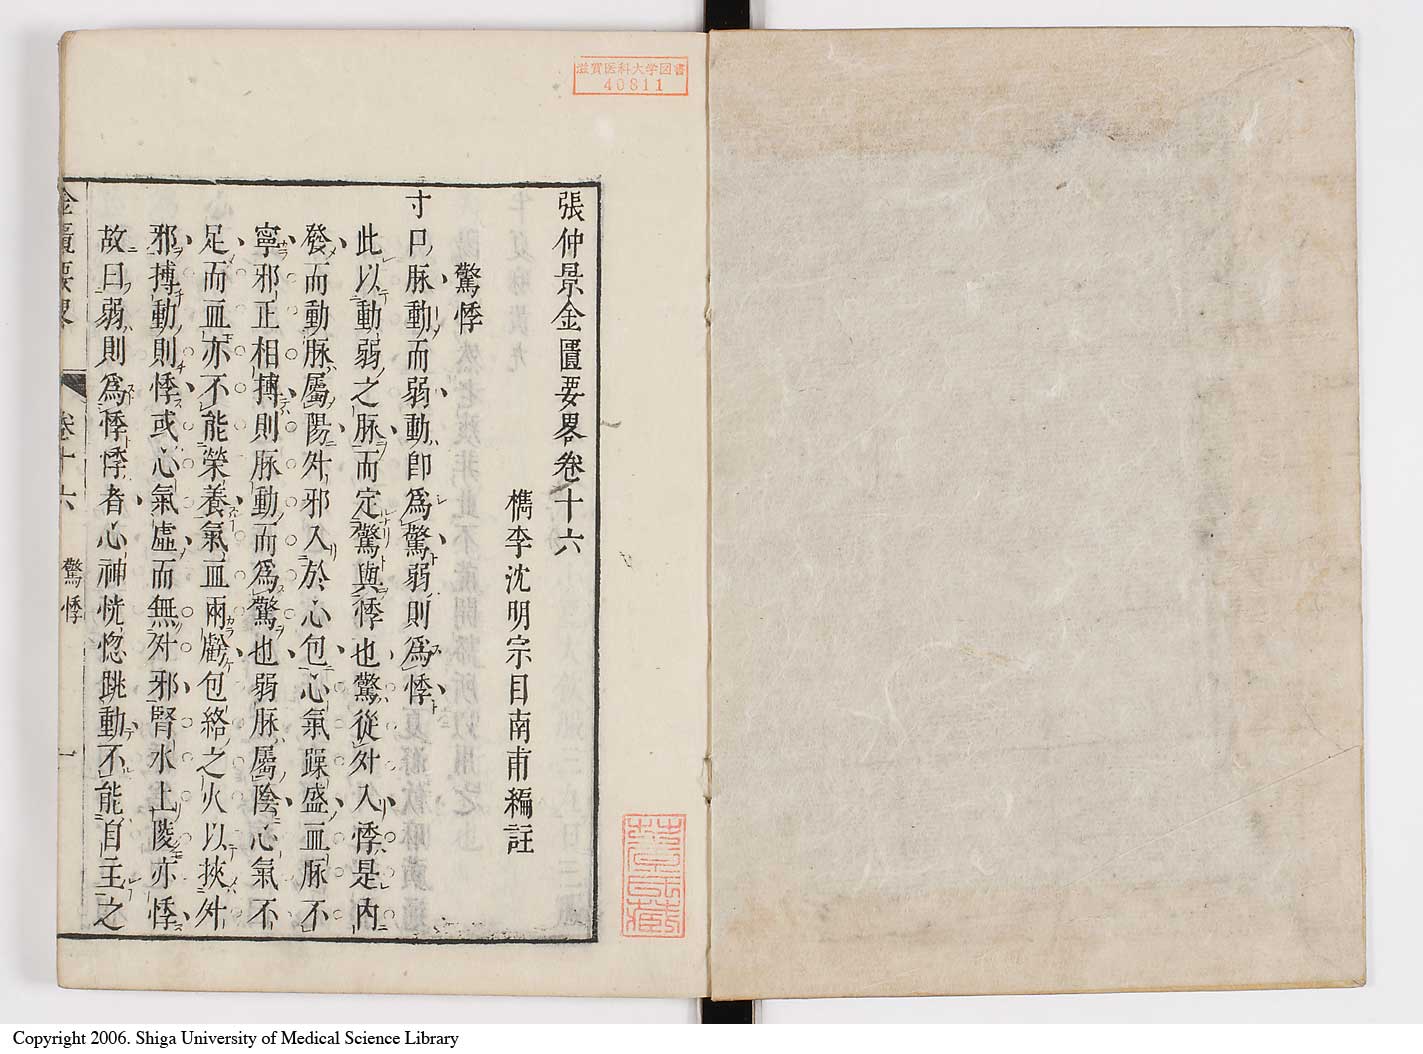 滋賀医科大学図書
40811
張仲景金匱要畧卷十六
檇李沈明宗目南甫編註
驚悸
寸口脉動而弱動即爲驚弱則爲悸
此以動弱之脉而定驚與悸也驚從外入悸是内
發而動脉屬陽外邪入於心包心氣躁盛血脉不
寧邪正相搏則脉動而爲驚也弱脉屬陰心氣不
足而血亦不能榮養氣血兩虧包絡之火以挾外
邪搏動則悸或心氣虛而無外邪腎水上陵亦悸
故曰弱則爲悸悸者心神恍惚跳動不能自主之
卷十六
驚悸
一
Copyright 2006. Shiga University of Medical Science Library